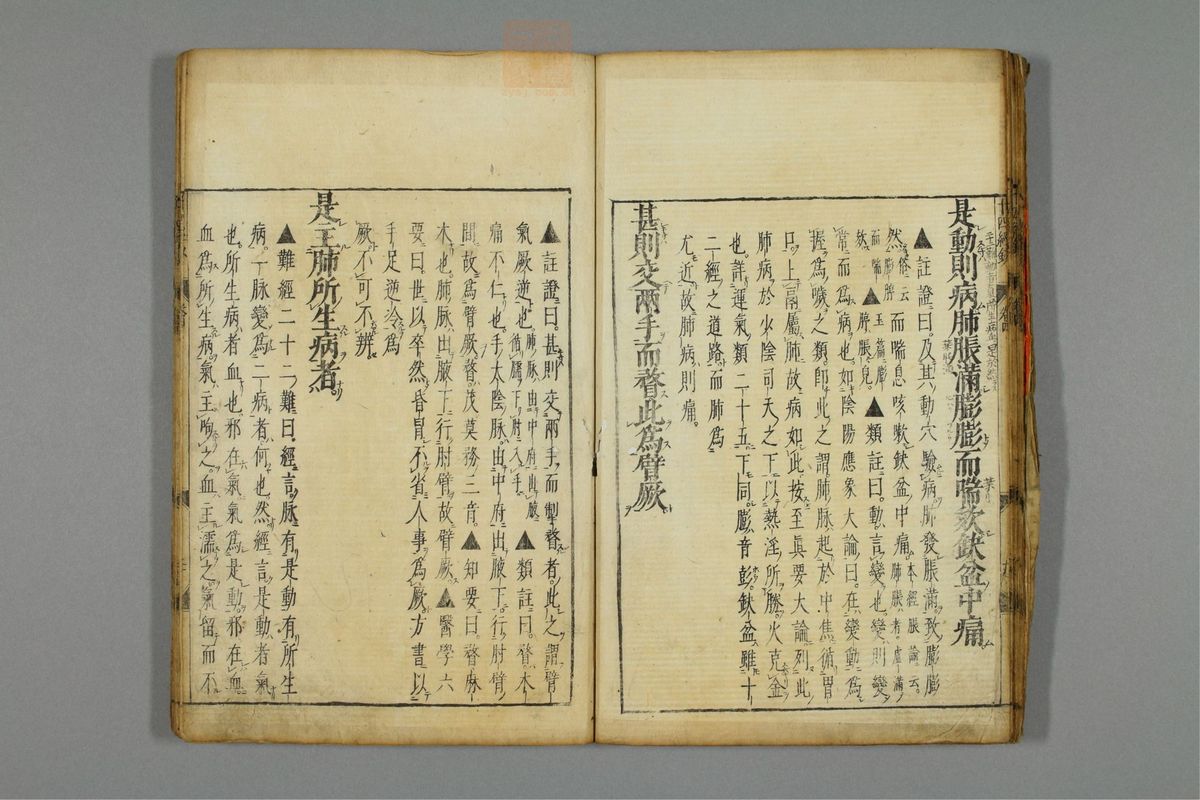 是動則病肺脹滿膨膨而喘欬缺盆中痛
▲註證曰。及其動穴驗病。肺發脹滿。致膨膨
然而喘息咳嗽。缺盆中痛。本經脹論云。肺脹者虛滿
而喘▲玉篇膨脝脹皃。▲類註曰。動言變也。變則變
常而為病也。如陰陽應象大論曰。在變動為
握為噦之類。即此之謂。肺脈起於中焦循胃
口。上鬲屬肺。故病如此。按至眞要大論。列此
肺病於少陰司天之下。以熱淫所勝。火克金
也。詳運氣類二十五。下同。膨音彭。缺盆雖十
二經之道路。而肺為
尤近。故肺病則痛。
甚則交兩手而瞀此為臂厥
▲註證曰。甚則交兩手而掣瞀者。此之謂臂
氣厥逆也。▲類註曰。瞀木
痛不仁也。手太陰脈由中府出腋下。行肘臂
間。故為臂厥。瞀茂莫務二音。▲知要曰。瞀麻
木也。肺脈出腋下行肘臂。故臂厥。▲醫學六
要曰。世以卒然昏冒不省人事為厥。方書以
手足逆冷為
厥。不可不辨。
是主肺所生病者。
▲難經二十二難曰。經言。脈有是動有所生
病。一脈變為二病者何也。然經言是動者氣
也。所生病者血也。邪在氣。氣為是動。邪在血。
血為所生病。氣主呴之。血主濡之。氣留而不